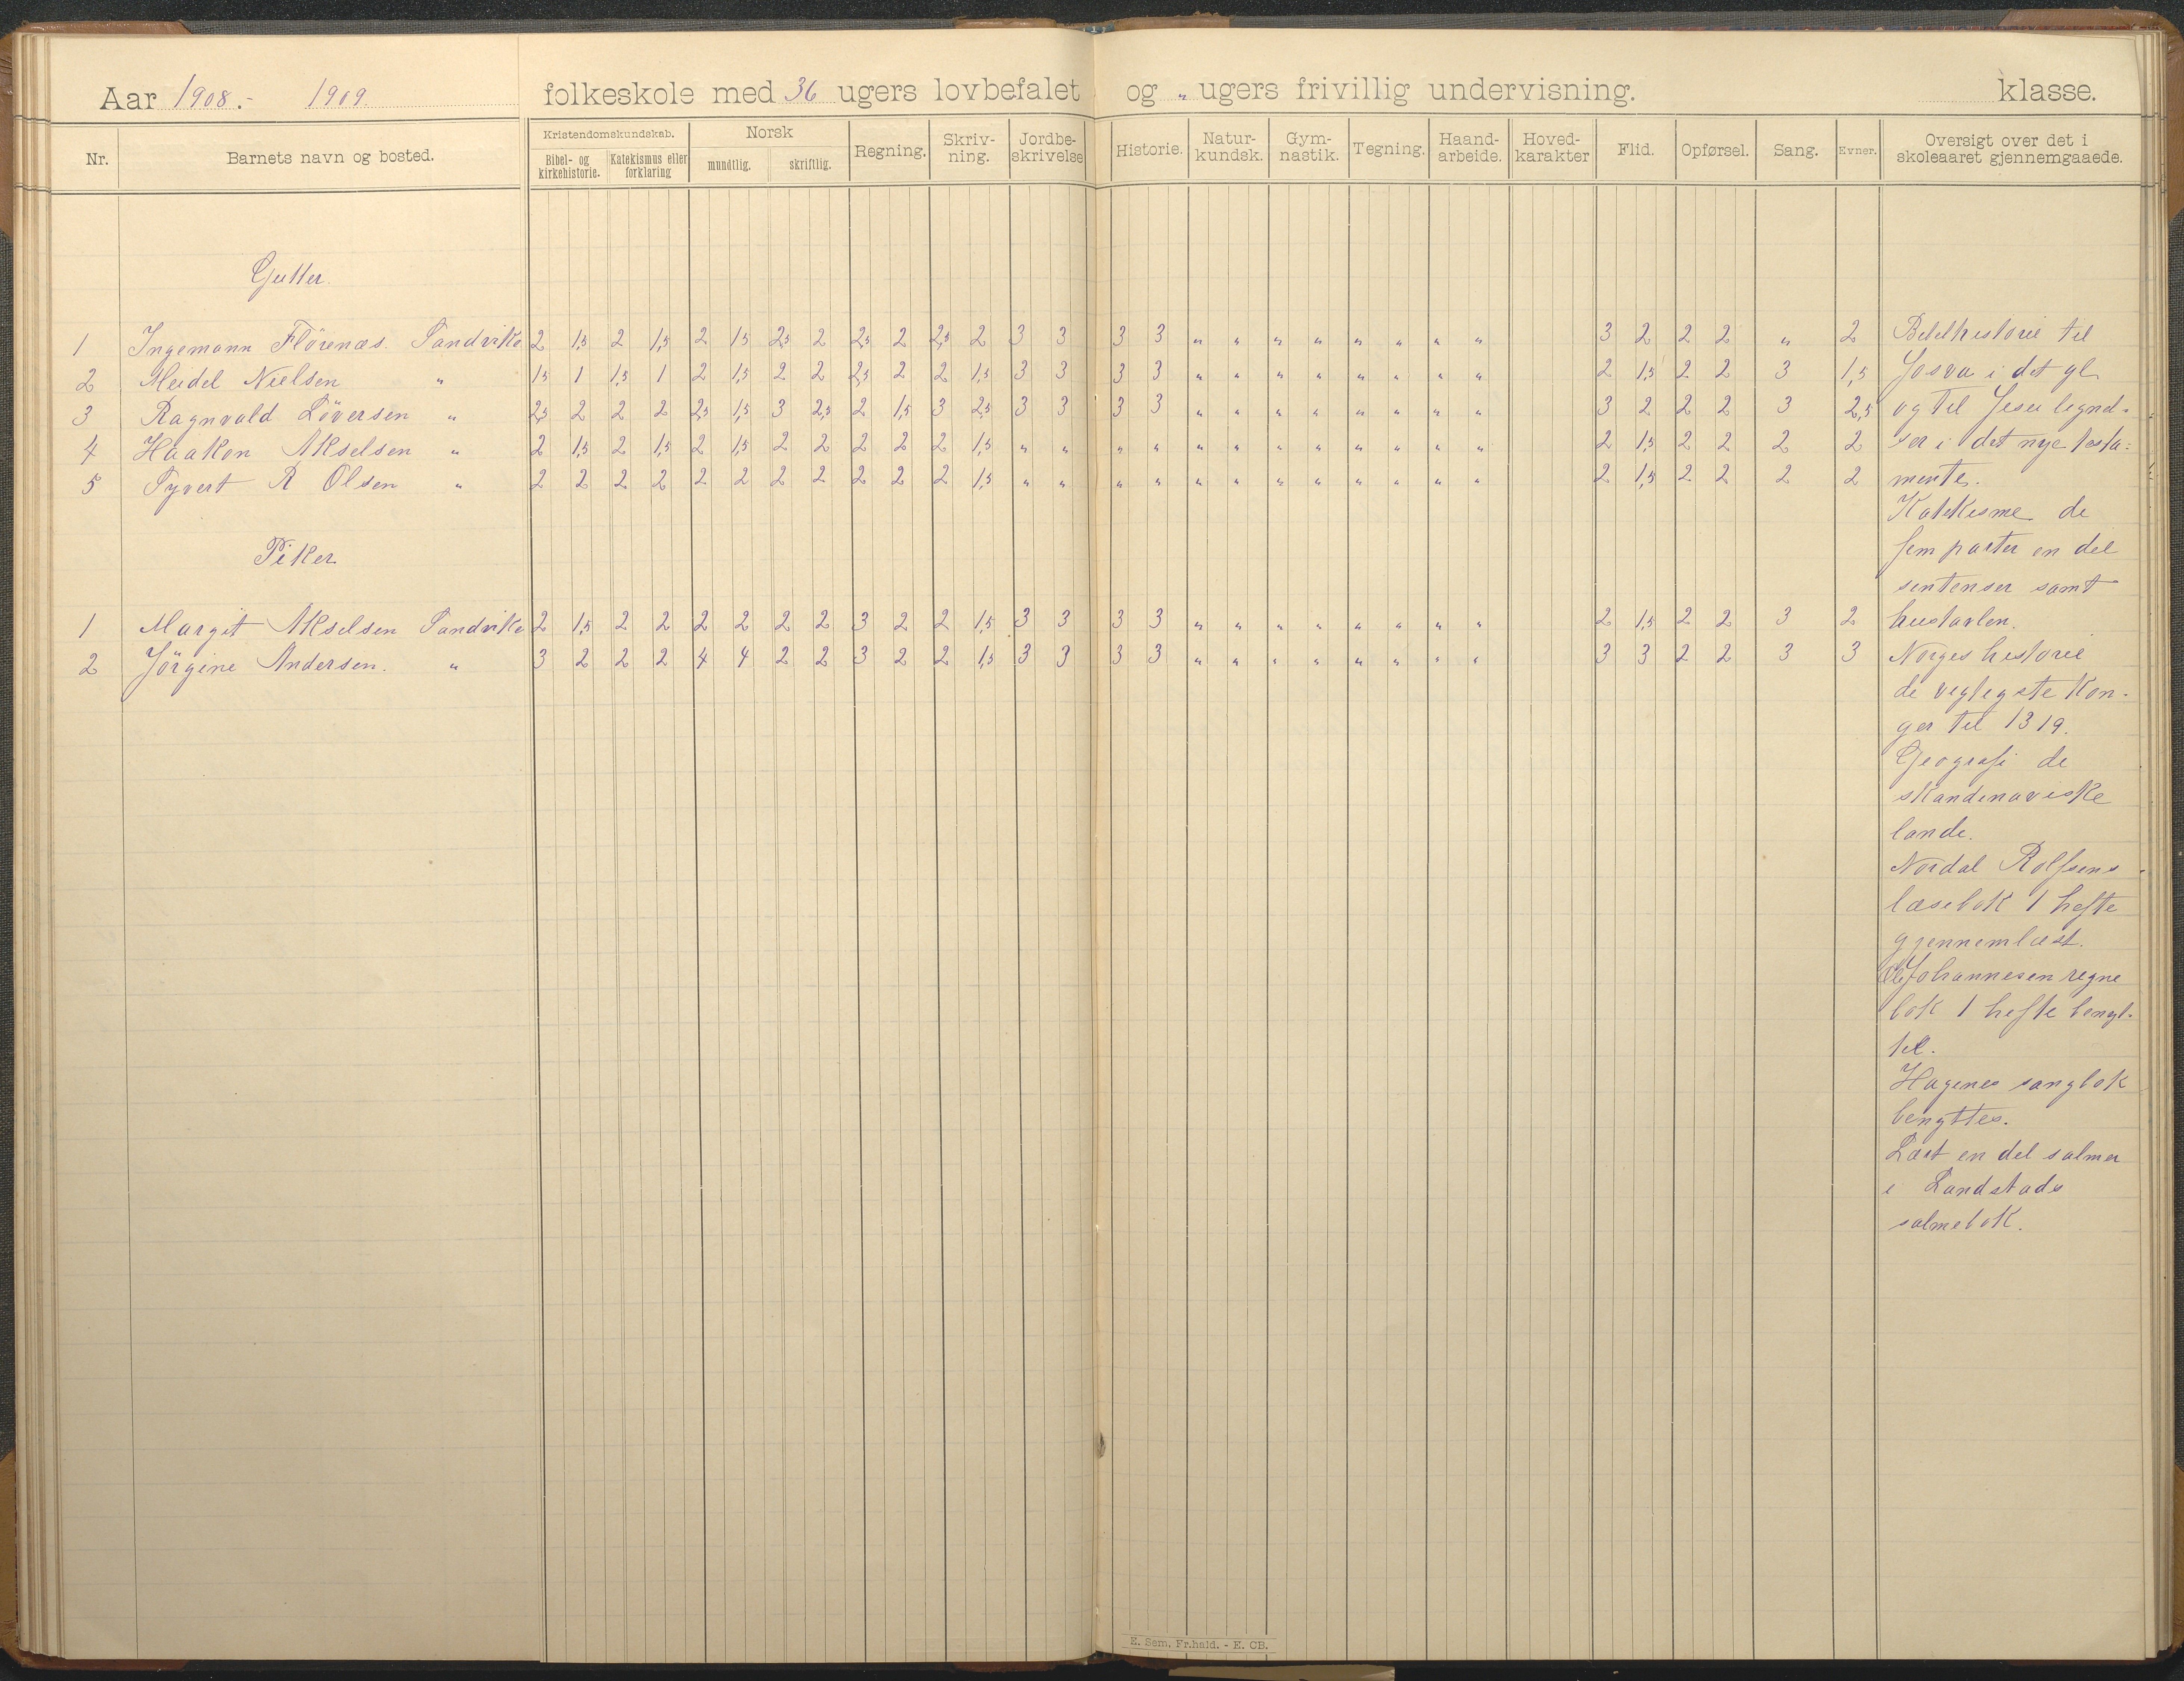 Aar 1908.- 1909. folkeskole med 36 ugers lovbefalet og " ugers frivillig undervisning. klasse.
Nr. Barnets navn og bosted. Kristendomskundskab. Norsk Regning. Skriv-ning. Jordbe-skrivelse Historie. Natur-kundsk. Gym-nastik. Tegning. Haand-arbeide. Hoved-karakter Flid. Opførsel. Sang. Evner. Oversigt over det i skoleaaret gjennemgaaede.
Bibel- og kirkehistorie. Katekismus eller forklaring mundtlig. skriftlig.
Gutter.
1 Ingemann Flörenæs. Sandvike 2 1,5 2 1,5 2 1,5 2,5 2 2,5 2 2,5 2 3 3 3 3 " " " " " " " " 3 2 2 2 " 2
2 Meidel Nielsen " 1,5 1 1,5 1 2 1,5 2 2 2,5 2 2 1,5 3 3 3 3 " " " " " " " " 2 1,5 2 2 3 1,5
3 Ragnvald Löversen " 2,5 2 2 2 2,5 1,5 3 2,5 2 1,5 3 2,5 3 3 3 3 " " " " " " " " 3 2 2 2 3 2,5
4 Haakon Akselsen " 2 1,5 2 1,5 2 1,5 2 2 2 2 2 1,5 " " " " " " " " " " " " 2 1,5 2 2 2 2
5 Syvert R Olsen " 2 2 2 2 2 2 2 2 2 2 2 1,5 " " " " " " " " " " " " 2 1,5 2 2 2 2
Piker
1 Margit Akselsen Sandvike 2 1,5 2 2 2 2 2 2 3 2 2 1,5 3 3 3 3 " " " " " " " " 2 1,5 2 2 3 2
2 Jörgine Andersen. " 3 2 2 2 4 4 2 2 3 2 2 1,5 3 3 3 3 " " " " " " " " 3 3 2 2 3 3
Bibelhistorie til
Josva i det gl
og til Jesu lignel-
ser i det nye testa-
mente.
Katekisme de
fem parter en del
sentenser samt
hustavlen.
Norges historie
de vigtigste kon-
ger til 1319.
Geografi de
skandinaviske
lande.
Nordal Rolfsens
læsebok 1 hefte
gjennemlæst.
Ole Johannesen regne
bok 1 hefte benyt-
tet.
Hagenes sangbok
benyttes.
Lært en del salmer
i Landstads
salmebok.
E. Sem. Fr.hald. - E. CB.